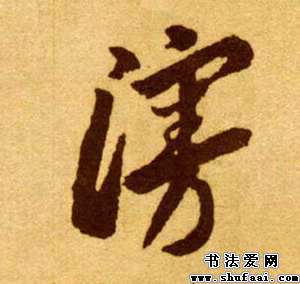 滂
书法爱网
www.shufaai.com